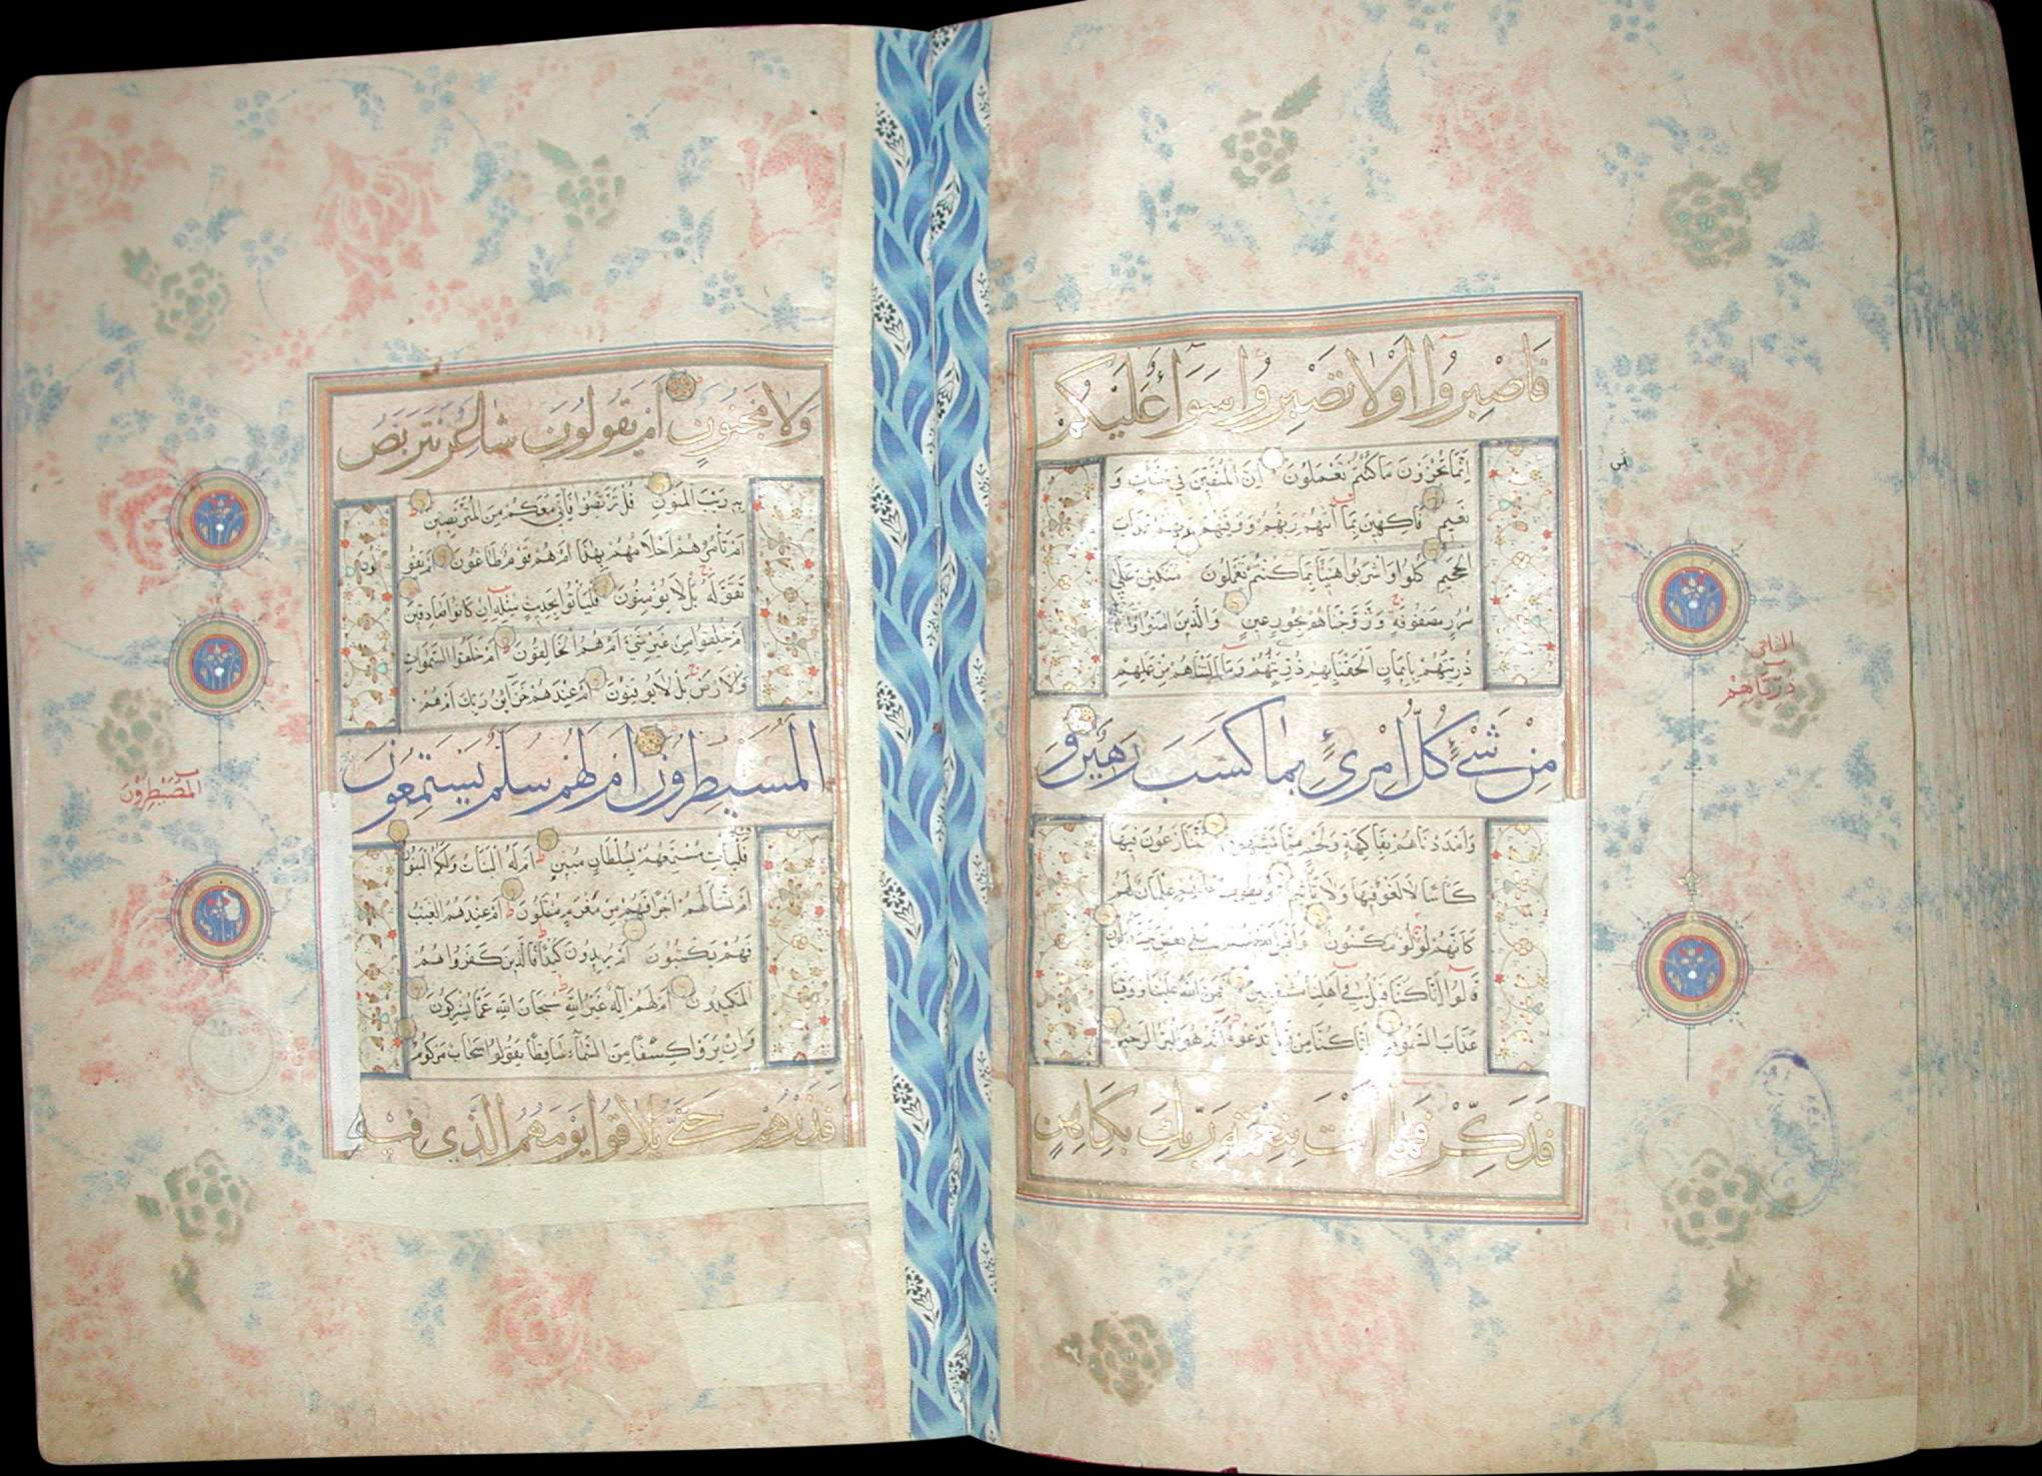 فَاصْبِرُوا أَوْ لَا تَصْبِرُوا سَوَاءٌ عَلَيْكُمْ
إِنَّمَا تُجْزَوْنَ مَا كُنْتُمْ تَعْمَلُونَ إِنَّ الْمُتَّقِينَ فِي جَنَّاتٍ وَ
نَعِيمٍ فَاكِهِينَ بِمَا آتٰهُمْ رَبُّهُمْ وَوَقٰهُمْ رَبُّهُمْ عَذَابَ
الْجَحِيمِ كُلُوا وَاشْرَبُوا هَنِيئًا بِمَا كُنْتُمْ تَعْمَلُونَ مُتَّكِئِينَ عَلَى
سُرُرٍ مَصْفُوفَةٍ وَزَوَّجْنَاهُمْ بِحُورٍ عِينٍ وَالَّذِينَ آمَنُوا
ذُرِّيَّتُهُمْ بِإِيمَانٍ أَلْحَقْنَا بِهِمْ ذُرِّيَّتَهُمْ وَمَا أَلَتْنَاهُمْ مِنْ عَمَلِهِمْ
مِنْ شَيْءٍ كُلُّ امْرِئٍ بِمَا كَسَبَ رَهِينٌ وَ
وَأَمْدَدْنَاهُمْ بِفَاكِهَةٍ وَلَحْمٍ مِمَّا يَشْتَهُونَ يَتَنَازَعُونَ فِيهَا
كَأْسًا لَا لَغْوٌ فِيهَا وَلَا تَأْثِيمٌ وَيَطُوفُ عَلَيْهِمْ غِلْمَانٌ لَهُمْ
كَأَنَّهُمْ لُؤْلُؤٌ مَكْنُونٌ وَأَقْبَلَ بَعْضُهُمْ عَلَى بَعْضٍ
قَالُوا إِنَّا كُنَّا قَبْلُ فِي أَهْلِنَا مُشْفِقِينَ فَمَنَّ اللَّهُ عَلَيْنَا وَوَقٰنَا
عَذَابَ السَّمُومِ إِنَّا كُنَّا مِنْ قَبْلُ نَدْعُوهُ إِنَّهُ هُوَ الْبَرُّ الرَّحِيمُ
فَذَكِّرْ فَمَا أَنْتَ بِنِعْمَةِ رَبِّكَ بِكَاهِنٍ
الثانى
ذُرِّيَّاهِمْ
وَلَا مَجْنُونٍ أَمْ يَقُولُونَ شَاعِرٌ نَتَرَبَّصُ
بِهِ رَيْبَ الْمَنُونِ قُلْ تَرَبَّصُوا فَإِنِّي مَعَكُمْ مِنَ الْمُتَرَبِّصِينَ
أَمْ تَأْمُرُهُمْ أَحْلَامُهُمْ بِهٰذَا أَمْ هُمْ قَوْمٌ طَاغُونَ أَمْ يَقُو لُونَ
تَقَوَّلَهُ بَلْ لَا يُؤْمِنُونَ فَلْيَأْتُوا بِحَدِيثٍ مِثْلِهِ إِنْ كَانُوا صَادِقِينَ
أَمْ خُلِقُوا مِنْ غَيْرِ شَيْءٍ أَمْ هُمُ الْخَالِقُونَ أَمْ خَلَقُوا السَّمٰوَاتِ
وَالْأَرْضَ بَلْ لَا يُوقِنُونَ أَمْ عِنْدَهُمْ خَزَائِنُ رَبِّكَ أَمْ هُمُ
الْمُسَيْطِرُونَ أَمْ لَهُمْ سُلَّمٌ يَسْتَمِعُونَ
فَلْيَأْتِ مُسْتَمِعُهُمْ بِسُلْطَانٍ مُبِينٍ أَمْ لَهُ الْبَنَاتُ وَلَكُمُ الْبَنُونَ
أَمْ تَسْأَلُهُمْ أَجْرًا فَهُمْ مِنْ مَغْرَمٍ مُثْقَلُونَ أَمْ عِنْدَهُمُ الْغَيْبُ
فَهُمْ يَكْتُبُونَ أَمْ يُرِيدُونَ كَيْدًا فَالَّذِينَ كَفَرُوا هُمُ
الْمَكِيدُونَ أَمْ لَهُمْ إِلٰهٌ غَيْرُ اللَّهِ سُبْحَانَ اللَّهِ عَمَّا يُشْرِكُونَ
وَإِنْ يَرَوْا كِسْفًا مِنَ السَّمَاءِ سَاقِطًا يَقُولُوا سَحَابٌ مَرْكُومٌ
فَذَرْهُمْ حَتَّى يُلَاقُوا يَوْمَهُمُ الَّذِي فِيهِ
الْمُصَيْطِرُونَ